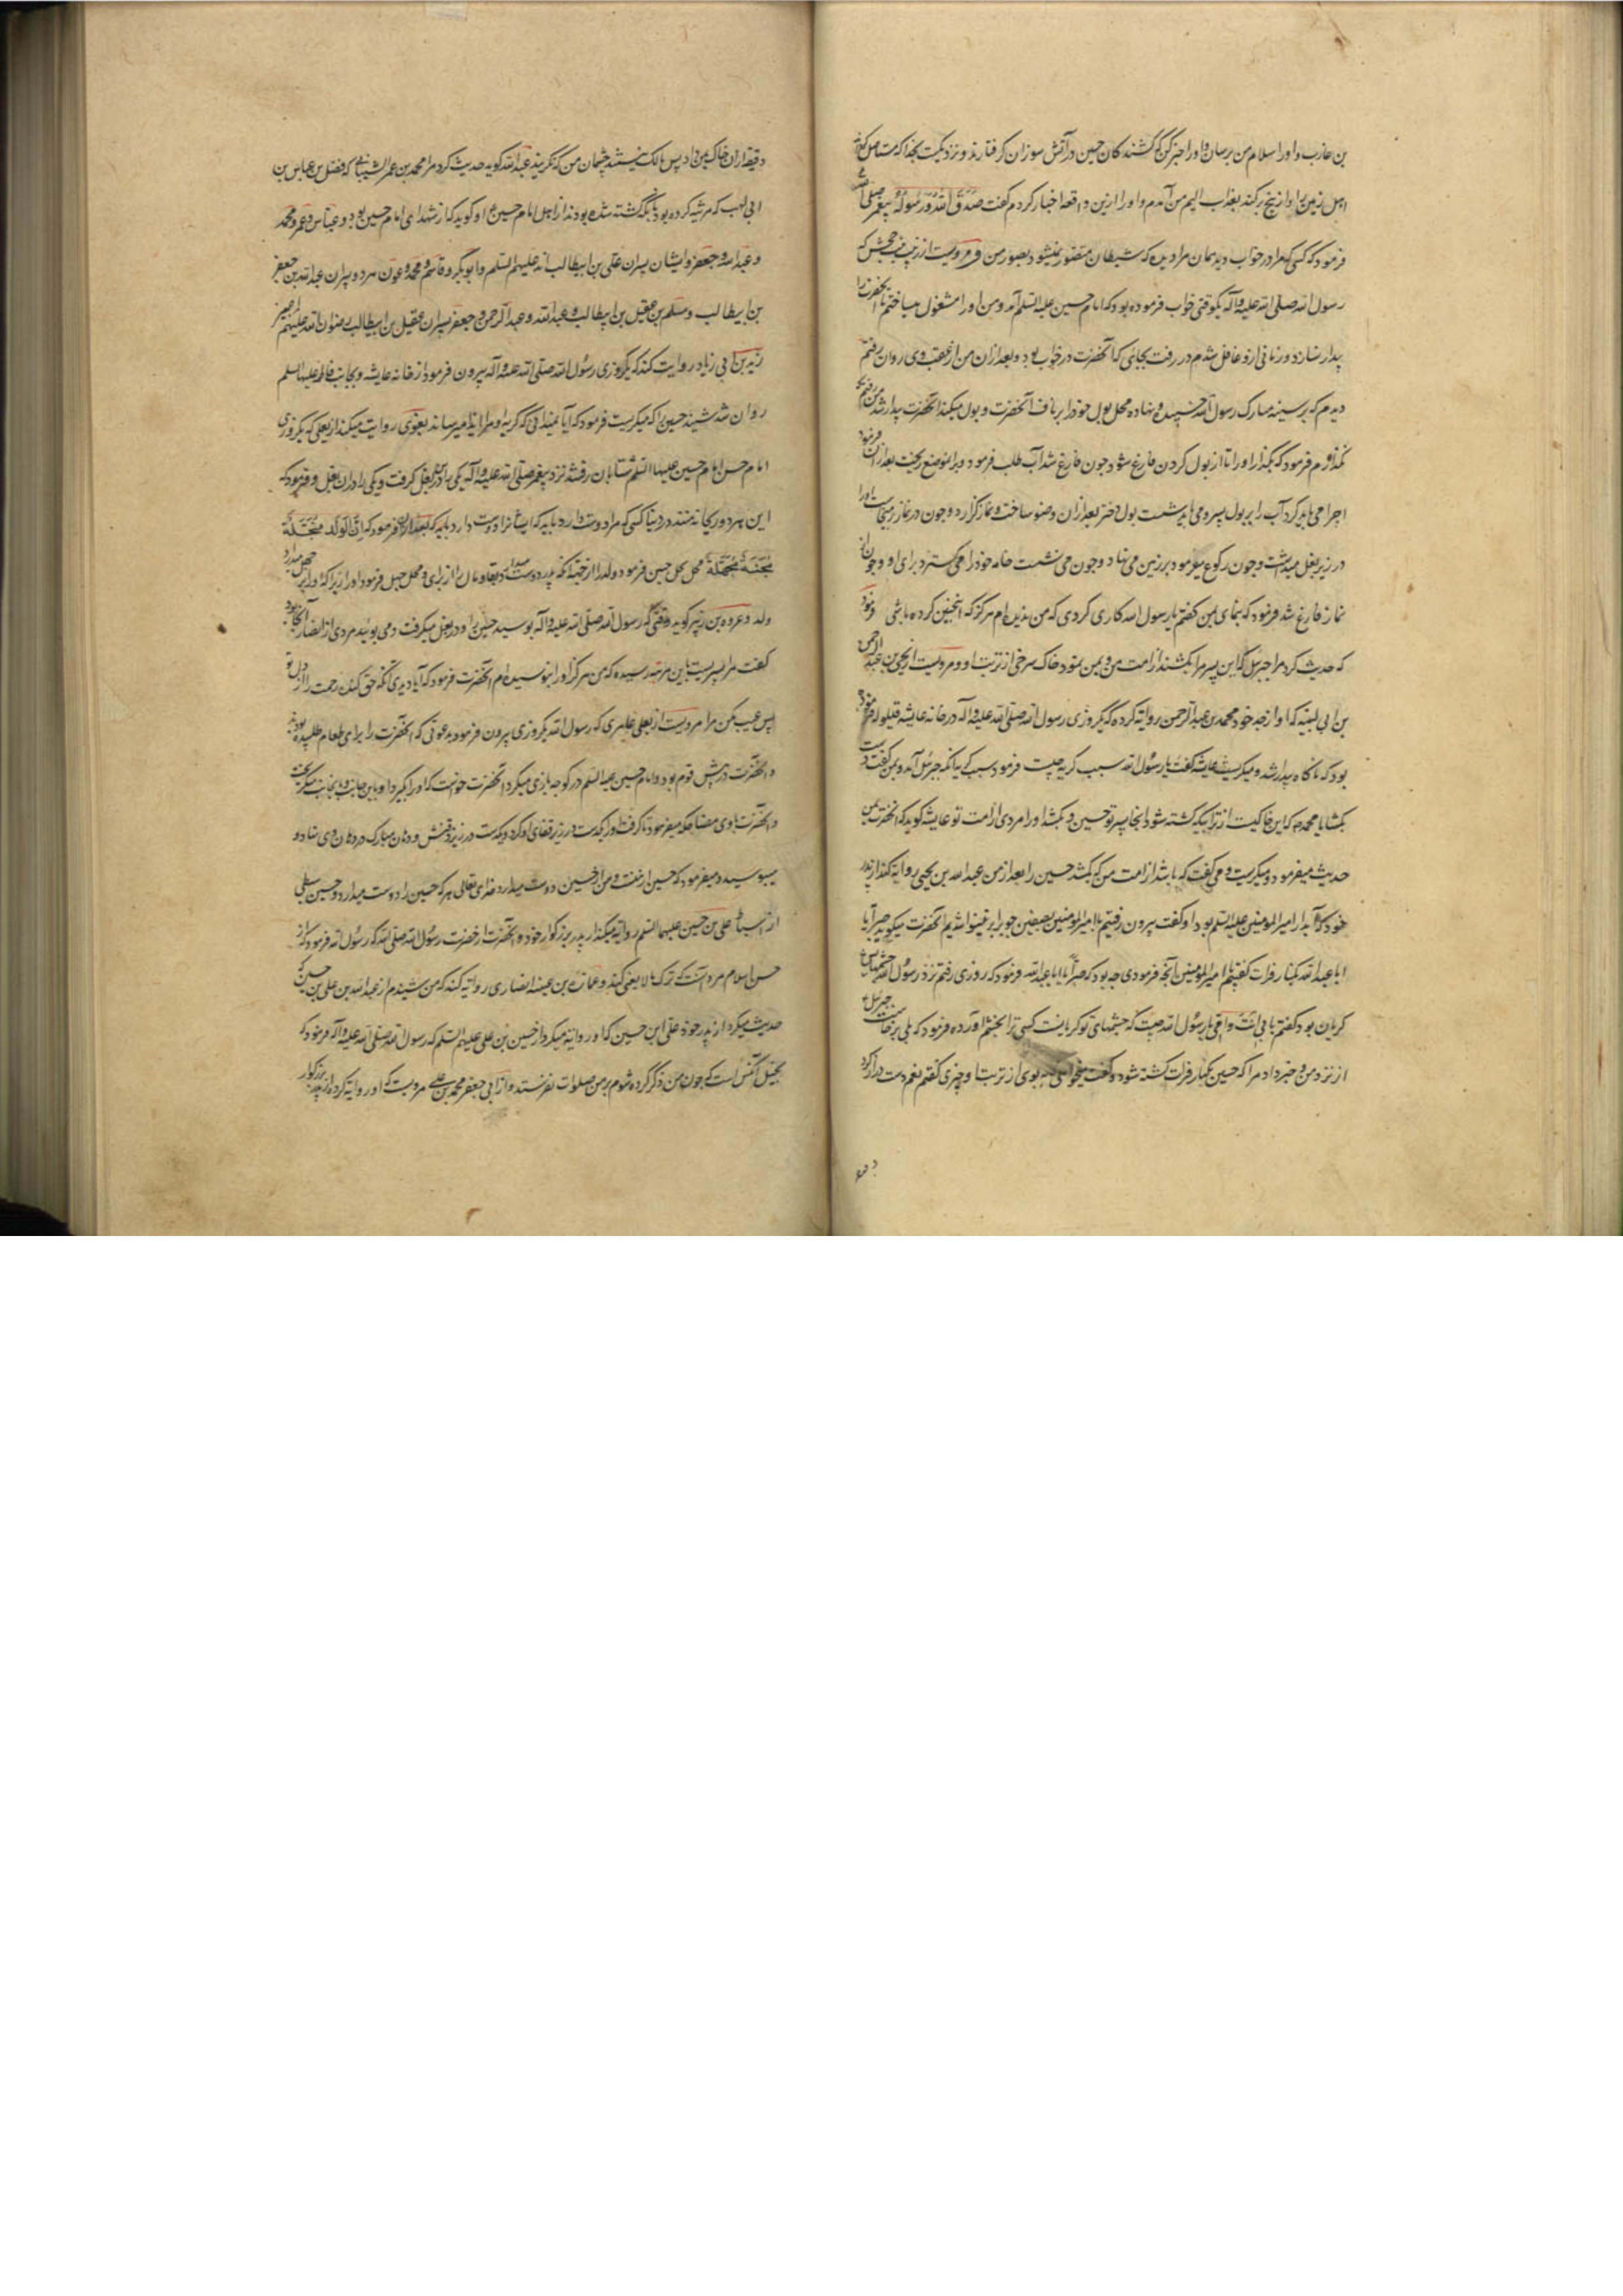 بن عازب و او را سلام من برسان و او را خبر کن که کشندکان حسین در آتش سوزان کرفتارند و نزدیکست بخدا که مستاصل
اهل زمین را و از بیخ برکند بعذاب الیم من آمدم و او را ازین واقعه اخبار کردم گفت صَدَقَ اللّٰه وَ رَسُولُهُ پیغمبر صلی الله
فرمود که کسی که مرا در خواب دید بمان مرا دیده که شیطان متصور نمیشود بصور من و مرویست از زینب بنت جحش که
رسول الله صلی الله علیه و اله یکوقتی خواب فرموده بود که امام حسین علیه السلم آمد و من او را مشغول میساختم تا آنحضرت را
بیدار نسازد و زمانی ازو غافل شدم در رفت بجایی که آنحضرت در خواب بود و بعد از آن من از عقب وی روان رفتم
دیدم که بر سینه مبارک رسول الله چسپیده و نهاده محل بول خود را بر ناف آنحضرت و بول میکند آنحضرت بیدار شد من رفتم که
فرمود که بگذار او را تا از بول کردن فارغ شود چون فارغ شد آب طلب فرمود و بر آنموضع ریخت بعد از آن فرمود
اجرا می باید کرد آب را بر بول پسر و می باید شست بول دختر بعد از آن وضو ساخت و نماز کزارد و چون در نماز بر میخاست او را
در زیر بغل میداشت و چون رکوع میفرمود بر زمین می نهاد و چون می نشست جامه خود را می کسترد برای او و چون از
نماز فارغ شد فرمود که بنمای بمن کفتم یا رسول الله کاری کردی که من ندیده ام هرکز که اینچنین کرده باشی فرمود
که حدیث کرد مرا جبرئیل که این پسر مرا بکشند از امت من و بمن نمود خاک سرخی از تربت او و مرویست از یحیی بن عبد الرحمن
بن ابی لبیبه که او از جد خود محمد بن عبد الرحمن روایة کرده که یکروزی رسول الله صلی الله علیه و اله در خانه عایشه قیلوله فرموده
بود که ناکاه بیدار شد و میکریست عایشه کفت یا رسول الله سبب کریه چیست فرمود سبب کریه آنکه جبرئیل آمد و بمن کفت دست
بکشا یا محمد که این خاکیست از تلی که کشته شود آنجا پسر تو حسین و بکشد او را مردی از امت تو عایشه کوید که آنحضرت بمن
حدیث میفرمود و میکریست و می کفت که باشد از امت من که بکشد حسین را بعد از من عبد الله بن یحیی روایة کند از پدر
خود که آبدار امیر المومنین علیه السلم بود او کفت بیرون رفتیم با امیر المومنین بصفین چو برابر نینوا شدیم آنحضرت میکوید صبراً یا
ابا عبد الله بکنار فرات کفتم یا امیر المومنین آنچه فرمودی چه بود که صبراً یا ابا عبد الله فرمود که روزی رفتم نزد رسول الله چشمهاش
کریان بود کفتم بابی انت و امی یا رسول الله چیست که چشمهای تو کریانست کسی ترا بخشم آورده فرمود که بلی برخاست جبرئیل
از نزد من و خبر داد مرا که حسین بکنار فرات کشته شود و کفت میخواهی که بوی از تربت او چیزی کفتم نعم دست دراز کرد
و قبضه
و قبضه از ان خاک بمن داد پس مالک نیستند چشمان من که نکریند عبد الله کوید حدیث کرد مرا محمد بن عمر الشیبانی که فضل بن عباس بن
ابی لهب که مرثیه کرده بود بآنکه کشته شده بودند از اهل امام حسین ع او کوید که از شهدای امام حسین بود و عباس و عمر و محمد
و عبد الله و جعفر و ایشان پسران علی بن ابیطالب اند علیهم السلم و ابوبکر و قاسم و محمد و عون هر دو پسران عبد الله بن جعفر
بن ابیطالب و مسلم بن عقیل بن ابیطالب و عبد الله و عبد الرحمن و جعفر پسران عقیل بن ابیطالب رضوان الله علیهم اجمعین
زید بن ابی زیاد روایت کند که یکروزی رسول الله صلی الله علیه و آله بیرون فرمود از خانه عایشه و بجانب فاطمه علیها سلم
روان شد شنید حسین را که میکریست فرمود که آیا نمیدانی که کریه او مرا ایذا میرساند بغوی روایت میکند از یعلی که یکروزی
امام حسن و امام حسین علیهما السلم شتابان رفتند نزد پیغمبر صلی الله علیه و آله یکی را در بغل کرفت و یکی را در ان بغل و فرمود که
این هر دو ریحانه منند در دنیا کسی که مرا دوست دارد باید که ایشانرا دوست دارد باید که بعد از ان فرمود که اِنَّ الوَلَد مَبخَلَة
مَجبَنَة مَجهَلَة محل بخل جبن فرمود ولد را از جهة آنکه پدر دوست میدارد بقا و مال را از برای و محل جهل فرمود او را زیرا که او را بر جهل میدارد
ولد و عروه بن زبیر کوید وقتی که رسول الله صلی الله علیه و آله بوسید حسین را و در بغل میکرفت و می بوئید مردی از انصار آنجا بود
کفت مرا پسریست باین مرتبه رسیده که من هرکز او را نبوسیده ام آنحضرت فرمود که آیا دیدی آنکه حق کنده رحمت را از دل تو
پس عیب مکن مرا مرویست از یعلی عامری که رسول الله یکروزی بیرون فرمود بدعوتی که آنحضرت را برای طعام طلبیده بودند
و آنحضرت در پیش قوم بود و امام حسین علیه السلم در کوچه بازی میکرد آنحضرت خواست که او را بگیرد او باین جانب و بآنجانب میکریخت
و آنحضرت با وی مضاحکه میفرمود تا کرفت او را یک دست در زیر قفای او کرد و یکدست در زیر ذقنش و دهان مبارک در دهان وی نهاد و
میبوسید و میفرمود که حسین از منست و من از حسین دوست میدارد خدای تعالی هر که حسین را دوست میدارد و حسین سبطی
از اسباط علی بن حسین علیهما السلم روایة میکند از پدر بزرکوار خود و آنحضرت از حضرت رسول الله صلی الله که رسول الله فرمود که از
حسن اسلام مرد آنست که ترک مالا یعنی کند و عماره بن غزیه انصاری روایة کند که من شنیدم از عبد الله بن علی بن حسین که
حدیث میکرد از پدر خود علی ابن حسین که او روایة میکرد از حسین بن علی علیهم السلم که رسول الله صلی الله علیه و اله فرمود که
بخیل آنکس است که چون من ذکر کرده شوم بر من صلوات نفرستد و از ابی جعفر محمد بن علی مرویست که او روایة کرد از پدر بزرکوار